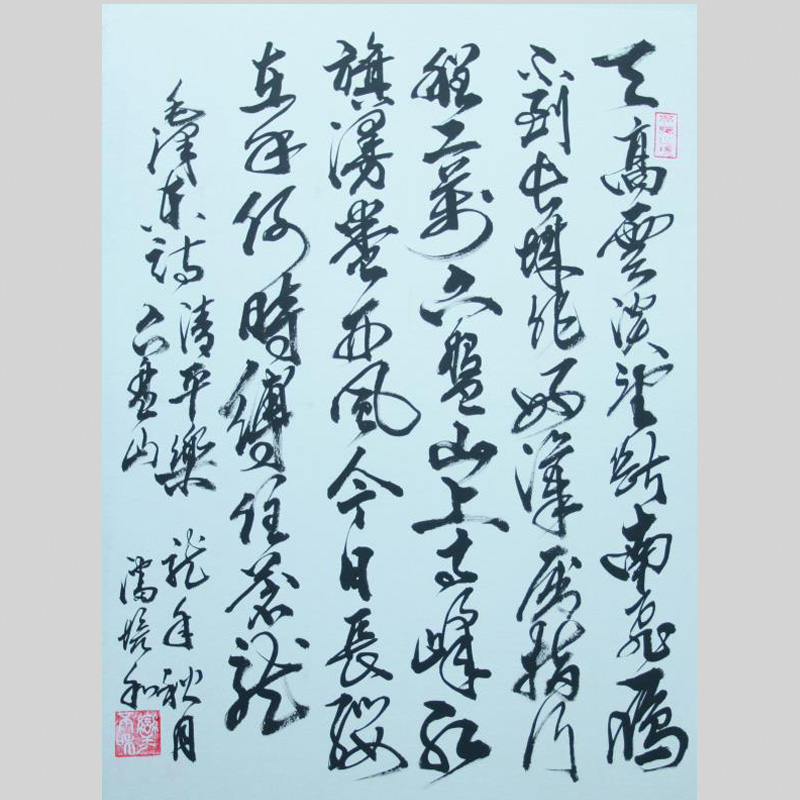 天高雲淡望断南飛鴈
不到長城非好漢屈指行
程二萬六盤山上高峰紅
旗漫卷西風今日長纓
在手何時縛住蒼龍
毛澤東詩
清平樂
六盘山
龍年秋月